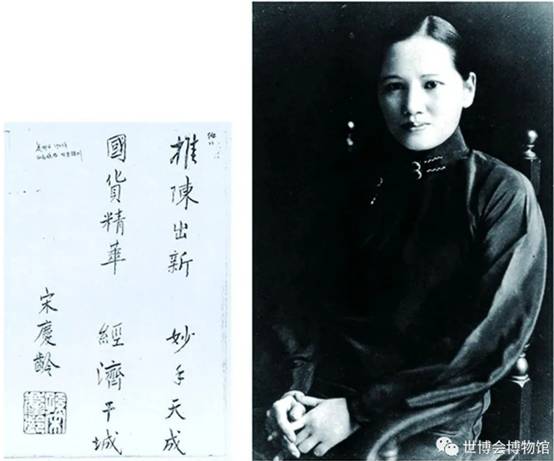 推陳出新 妙手天成
國貨精華 經濟干城
宋慶齡
世博会博物馆